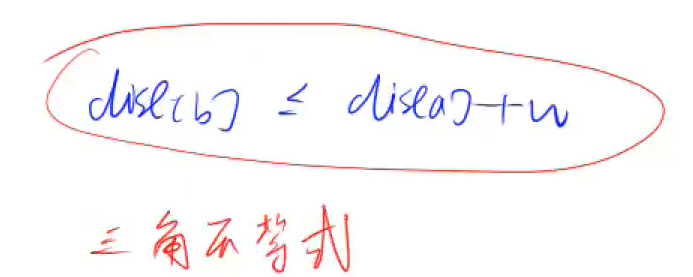 dist[b] ≤ dist[a]+w
三角不等式